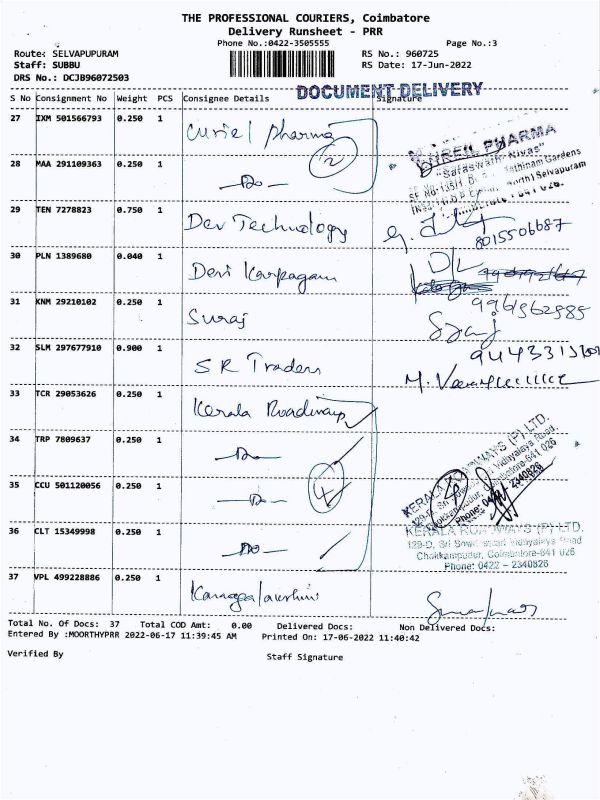 THE PROFESSIONAL COURIERS, Coimbatore
Delivery Runsheet - PRR
Phone No.:0422-3505555
Page No.:3
Route: SELVAPUPURAM
RS No.: 960725
Staff: SUBBU
RS Date: 17-Jun-2022
DRS No.: DCJB96072503
DOCUMENT DELIVERY
S No Consignment No Weight PCS Consignee Details Signature
27 IXM 501566793 0.250 1 Curiel Pharma
2
28 MAA 291109363 0.250 1 -Do-
PHARMA
"Saraswathi Nivas"
Selvapuram
29 TEN 7278823 0.750 1 Dev Technology
8015506687
30 PLN 1389680 0.040 1 Devi Karpagam
D/L
31 KNM 29210102 0.250 1 Suraj
9961562985
Suraj
32 SLM 297677910 0.900 1 SR Traders
33 TCR 29053626 0.250 1 Kerala Roadways
34 TRP 7809637 0.250 1 -Do-
4
35 CCU 501120056 0.250 1 -Do-
KERALA ROADWAYS (P) LTD.
129-D, Sri
Vidhyalaya Road,
Coimbatore-641 026
Phone: 0422 - 2340826
36 CLT 15349998 0.250 1 -Do-
KERALA ROADWAYS (P) LTD.
129-D, Sri
Vidhyalaya Road
Chokkampudur, Coimbatore-641 026
Phone: 0422 - 2340826
37 VPL 499228886 0.250 1
Total No. Of Docs: 37 Total COD Amt: 0.00 Delivered Docs: Non Delivered Docs:
Entered By :MOORTHYPRR 2022-06-17 11:39:45 AM Printed On: 17-06-2022 11:40:42
Verified By
Staff Signature